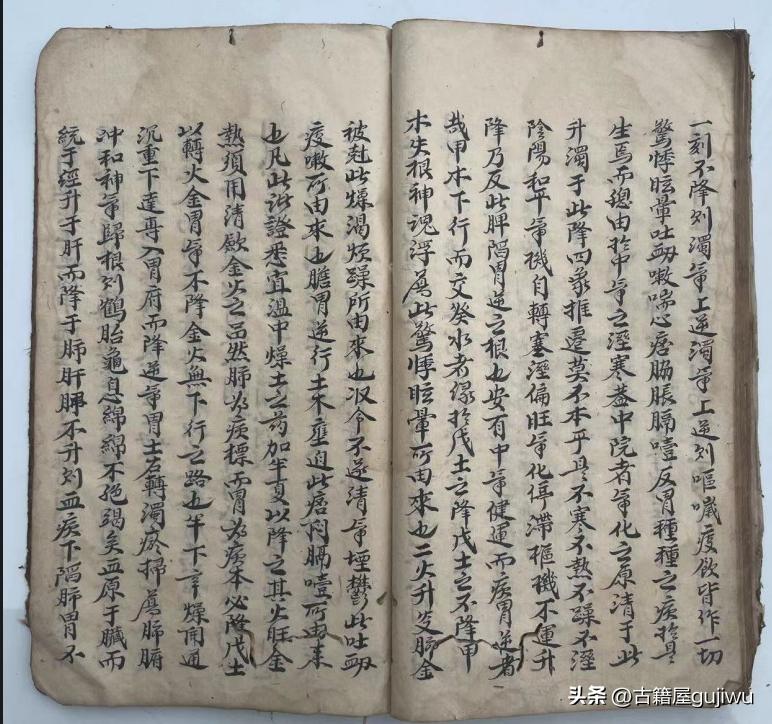 一刻不降则濁氣上逆濁氣上逆则嘔噦痰飲皆作一切
驚悸眩暈吐衂嗽喘心痞脇脹膈噎反胃種種之疾於是
生焉而總由於中氣之溼寒蓋中院者氣化之原清于此
升濁于此降四象推遷莫不本乎是不寒不熱不躁不溼
陰陽和平氣機自轉寒溼偏旺氣化停滯樞機不運升
降乃反此脾陷胃逆之根也安有中氣健運而疾胃逆者
哉甲木下行而交癸水者緣於戊土之降戊土之不降甲
木失根神魂浮蕩此驚悸眩暈所由來也二火升炎肺金
被尅此燥渴煩躁所由來也收令不遂清氣堙鬱此吐衂
痰嗽所由來也膽胃逆行土木壅迫此痞悶膈噎所由來
也凡此諸證悉宜溫中燥土之药加半夏以降之其火旺金
熱須用清歛金火之品然肺為疾標而胃為疾本必降戊土
以轉火金胃氣不降金火無下行之路也半下辛燥開通
沉重下達專入胃府而降逆氣胃土右轉濁瘀掃蕩肺腑
冲和神氣歸根则鶴胎龜息綿綿不绝竭矣血原于臟而
統于經升于肝而降于肺肝脾不升则血疾下陷肺胃不